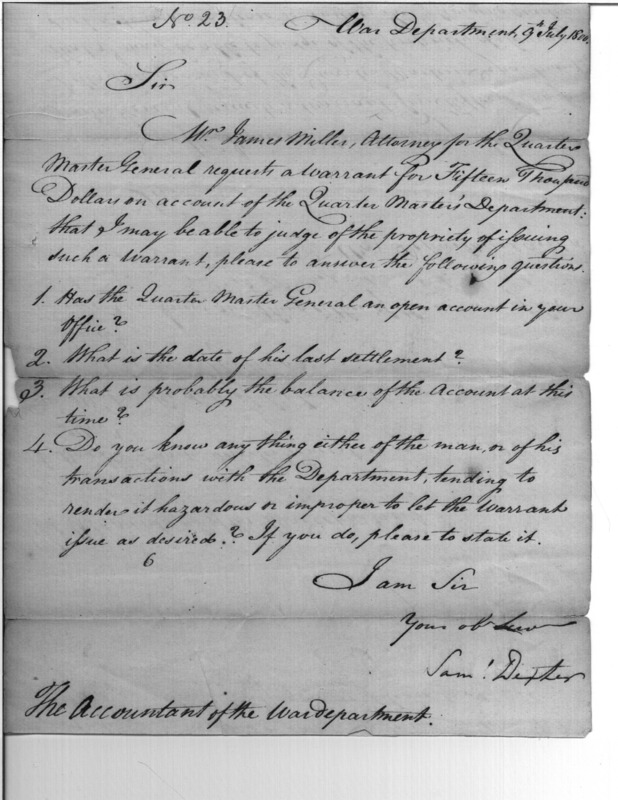 No. 23.
War Department, 9th July 1800.
Sir
Mr. James Miller, Attorney for the Quarter
Master General requests a warrant for Fifteen Thousand
Dollars on account of the Quarter Master's Department:
that I may be able to judge of the propriety of issuing
such a warrant, please to answer the following questions.
1. Has the Quarter Master General an open account in your
Office?
2. What is the date of his last settlement?
3. What is probably the balance of the Account at this
time?
4. Do you know any thing either of the man, or of his
transactions with the Department, tending to
render it hazardous or improper to let the warrant
issue as desired? If you do, please to state it.
6
I am Sir
Your ob Serv
Saml. Dexter
The Accountant of the War department.